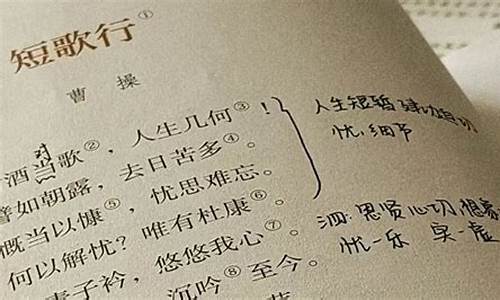 短歌行①
曹操
对
酒当歌②，人生几何③！
譬如朝露，去日苦多④。
慨当以慷⑤，忧思难忘。
何以解忧？唯有杜康⑥。
子衿，悠悠我心⑦。
沉吟⑧至今。
人生短暂 建功
忧：细节
思贤心切
忧—乐 实—虚